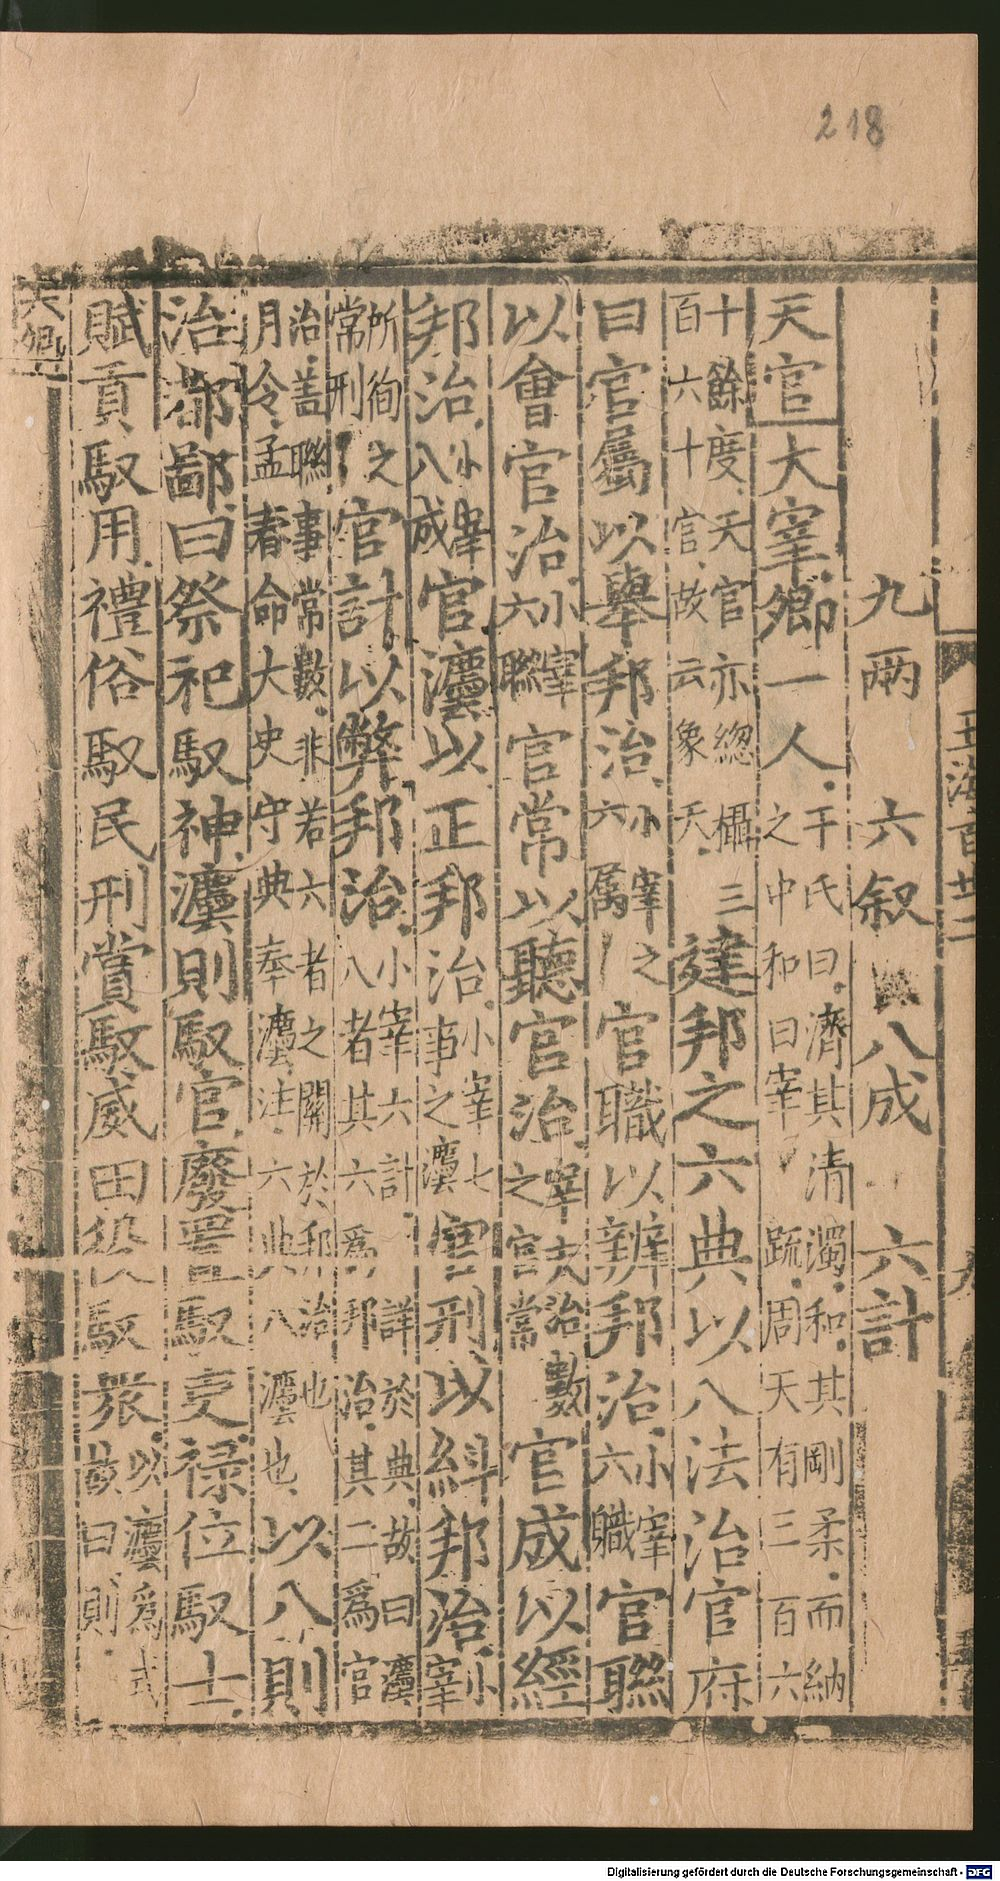 218
九兩 六叙 八成 六計
天官大宰卿一人干氏曰濟其清濁和其剛柔而納之中和曰宰疏周天有三百六
十餘度天官亦緫攝三百六十官故云象天建邦之六典以八法治官府
曰官屬以舉邦治小宰之六属官職以辨邦治小宰六職官聯
以會官治小宰六聯官常以聽官治宰夫治之官常數官成以經
邦治小宰八成官灋以正邦治小宰七事之灋官刑以糾邦治小宰
所徇之常刑官計以弊邦治小宰六計詳於典故曰灋八者其六爲邦治其二爲官
治善聯事常數非若六者之關於邦治也月令孟春命大史守典奉灋注六典八灋也以八則
治都鄙曰祭祀馭神灋則馭官廢置馭吏禄位馭士
賦貢馭用禮俗馭民刑賞馭威田役馭衆以灋爲式故曰則
天卿
Digitalisierung gefördert durch die Deutsche Forschungsgemeinschaft - DFG